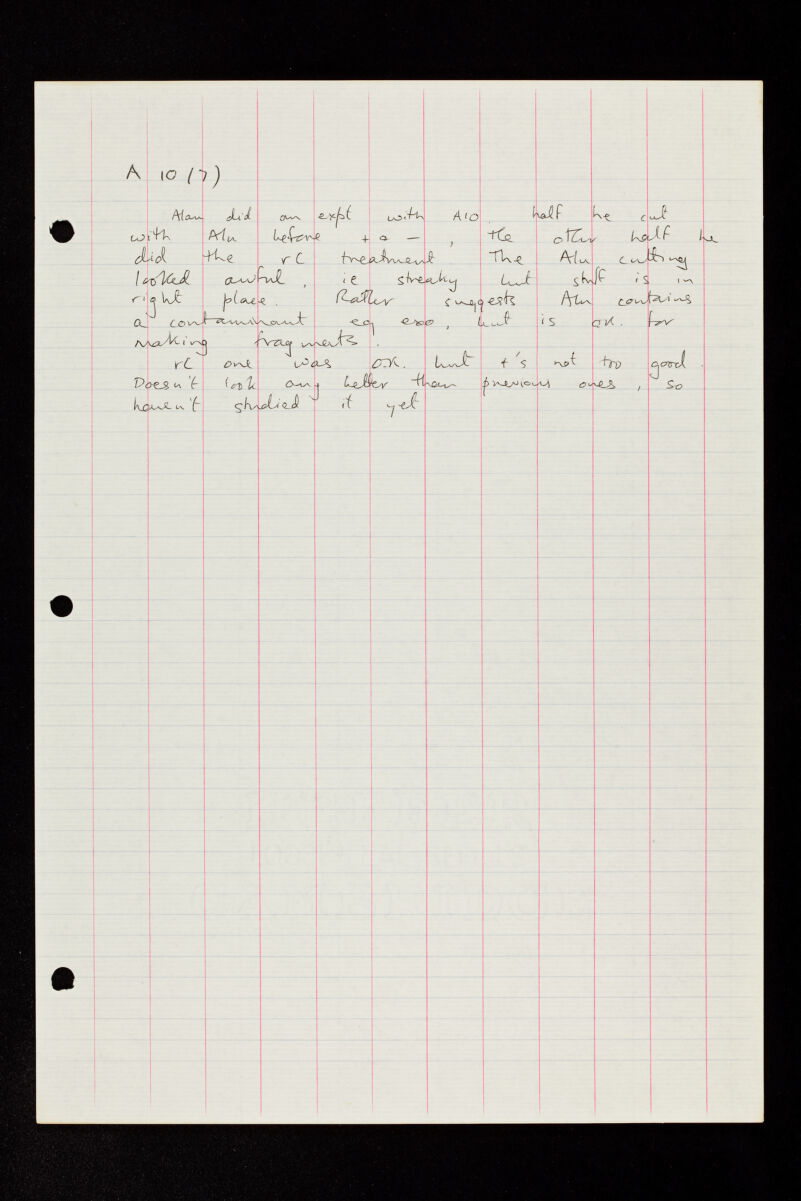 A 10 (7)
Alan did an expt with A10. half he cut
with Alu before + a —, the other half he
did the rC treatment. The Alu cutting
looked awful, ie streaky but stuff is in
right place. Rather suggests Alu contains
a contaminant eg exo, but is OK. for
making fragments.
rC one was O.K. but t's not too good.
Doesn't look any better than previous ones, so
haven't studied it yet